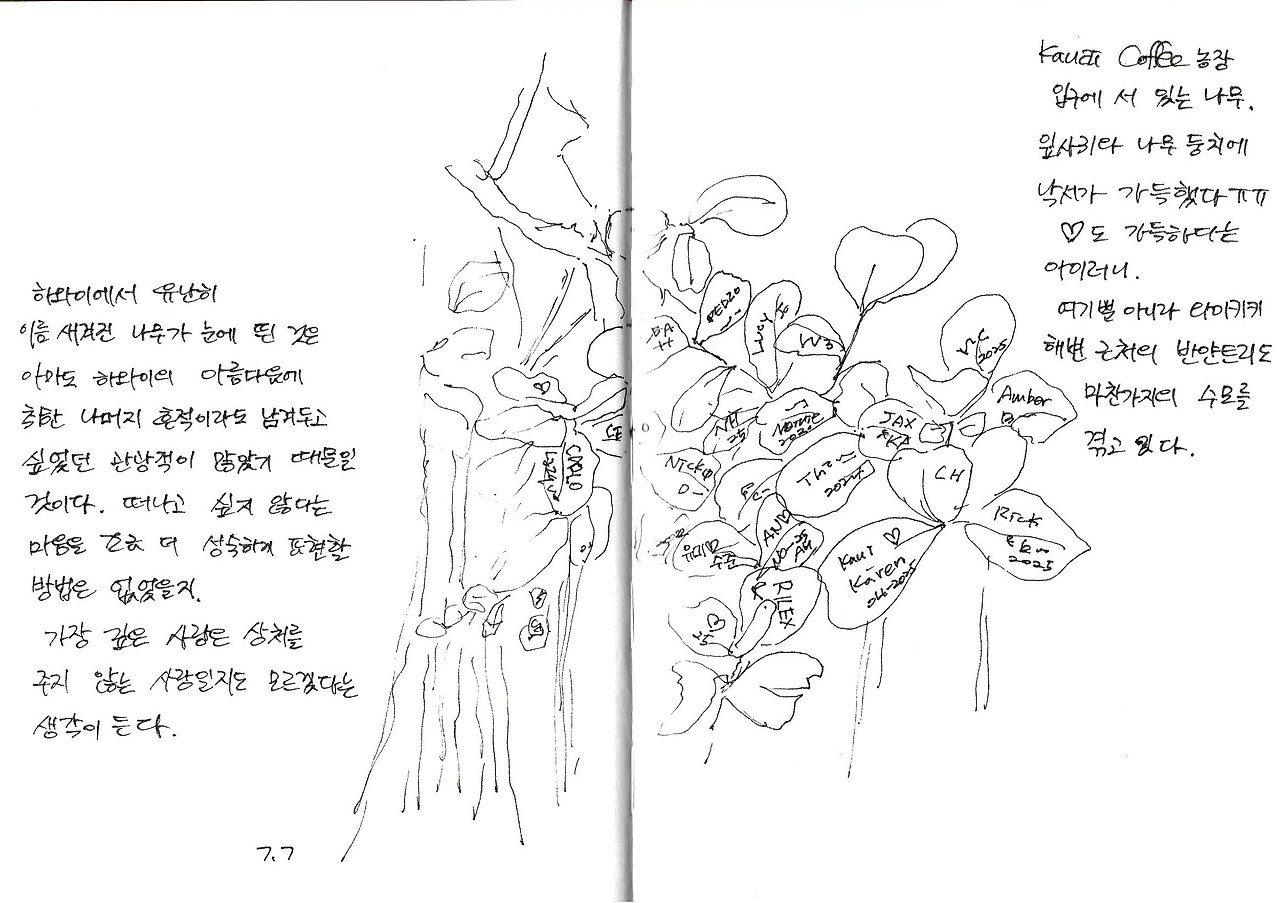 Kauai Coffee 농장
입구에 서 있는 나무.
잎사귀랑 나무 둥치에
낙서가 가득했다ㅠㅠ
♡도 가득하다는
아이러니.
여기뿐 아니라 와이키키
해변 근처의 반얀트리도
마찬가지의 수모를
겪고 있다.
하와이에서 유난히
이름 새겨진 나무가 눈에 띈 것은
아마도 하와이의 아름다움에
취한 나머지 흔적이라도 남겨두고
싶었던 관광객이 많았기 때문일
것이다. 떠나고 싶지 않다는
마음을 더 성숙하게 표현할
방법은 없었을지.
가장 깊은 사랑은 상처를
주지 않는 사랑일지도 모르겠다는
생각이 든다.
7.7
PEDRO
LUCY
VV3
VIC
2025
Amber
JAX
KA
LH
Rick
2025
NH
25
2020
2024
NICK
D-
AND
유미♡
수준
Kaui ♡
Karen
06-2025
RILEX
♡
25